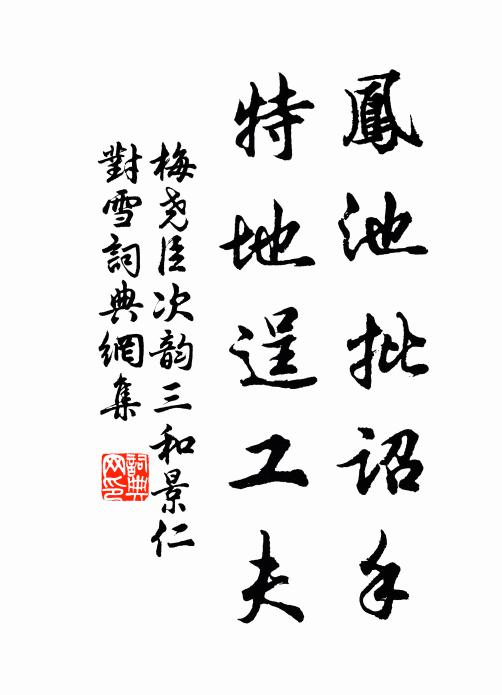 鳳池批詔手
特地逞工夫
梅堯臣次韵三和景仁
對雪詞典網集
詞典網印